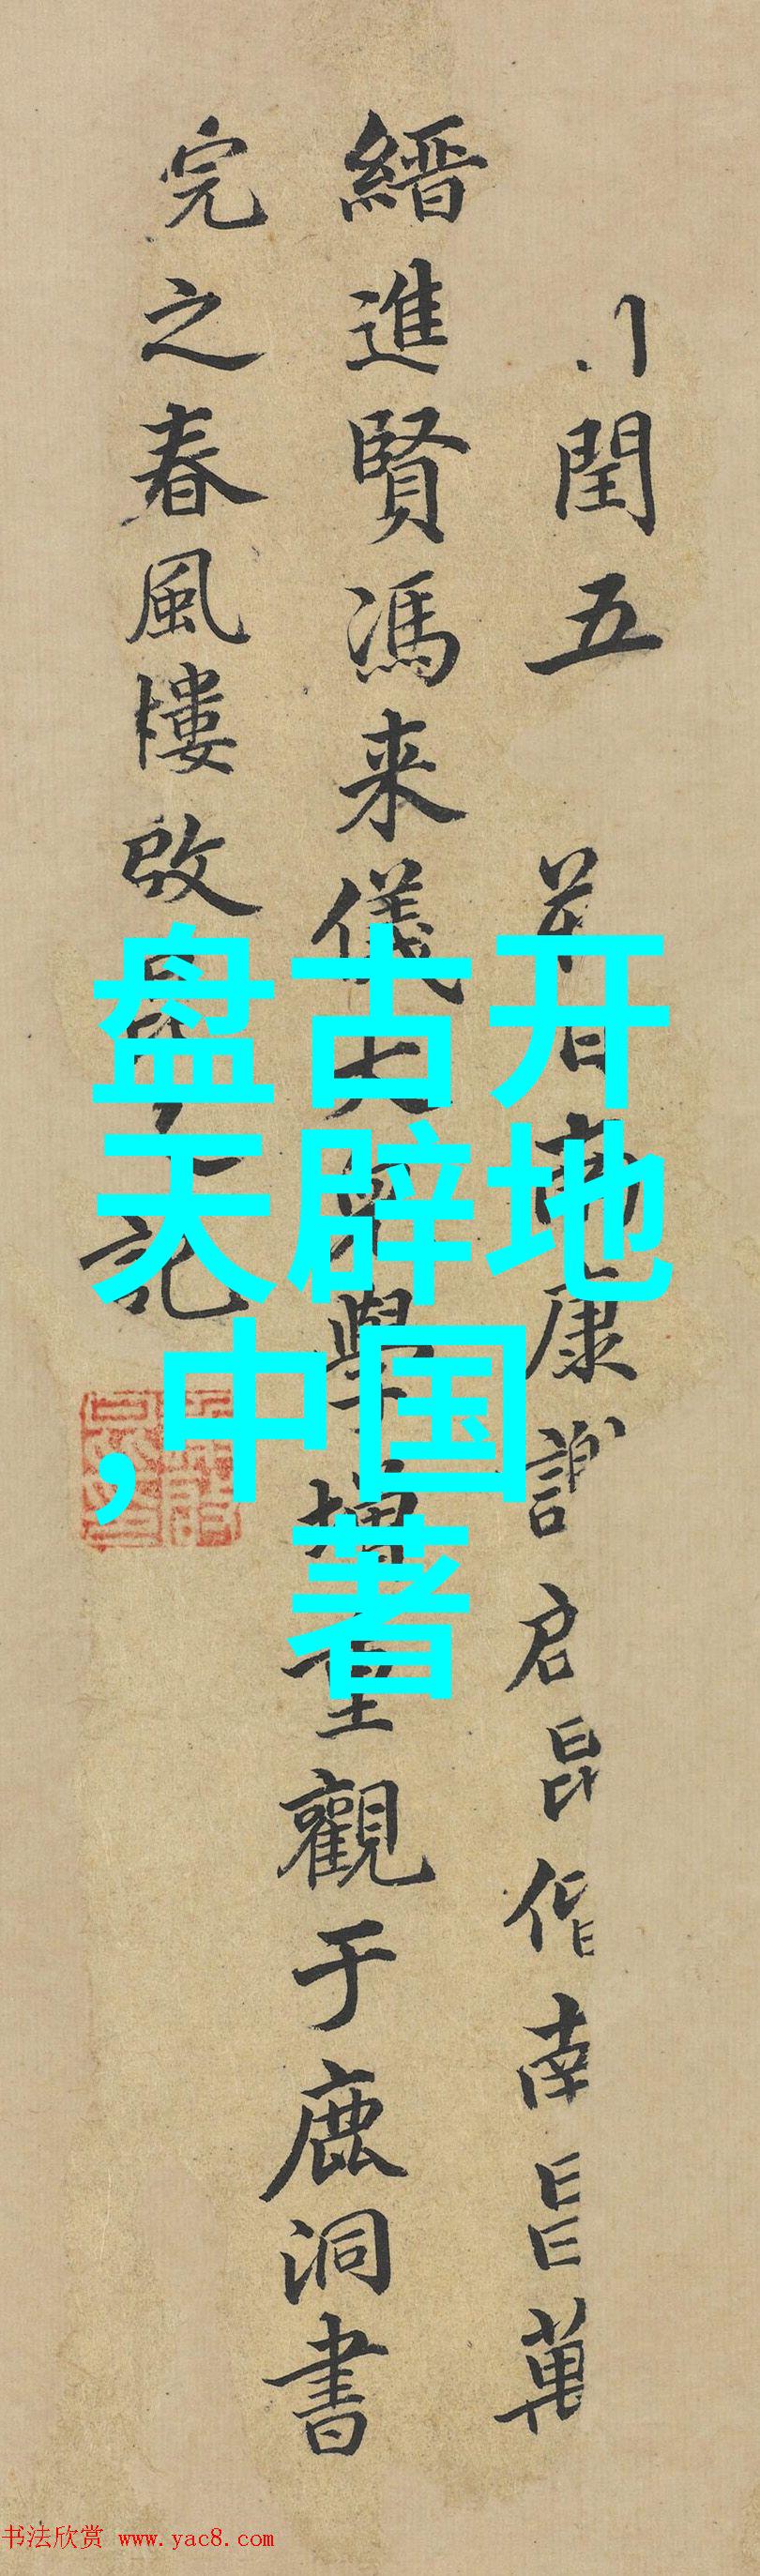 盘古开
天辟地
,中国
著
閏五 康謝启昆偕南昌萬
縉進賢馮来儀 學 重觀于鹿洞書
完之春風樓啟 記
书法欣赏 www.yac8.com